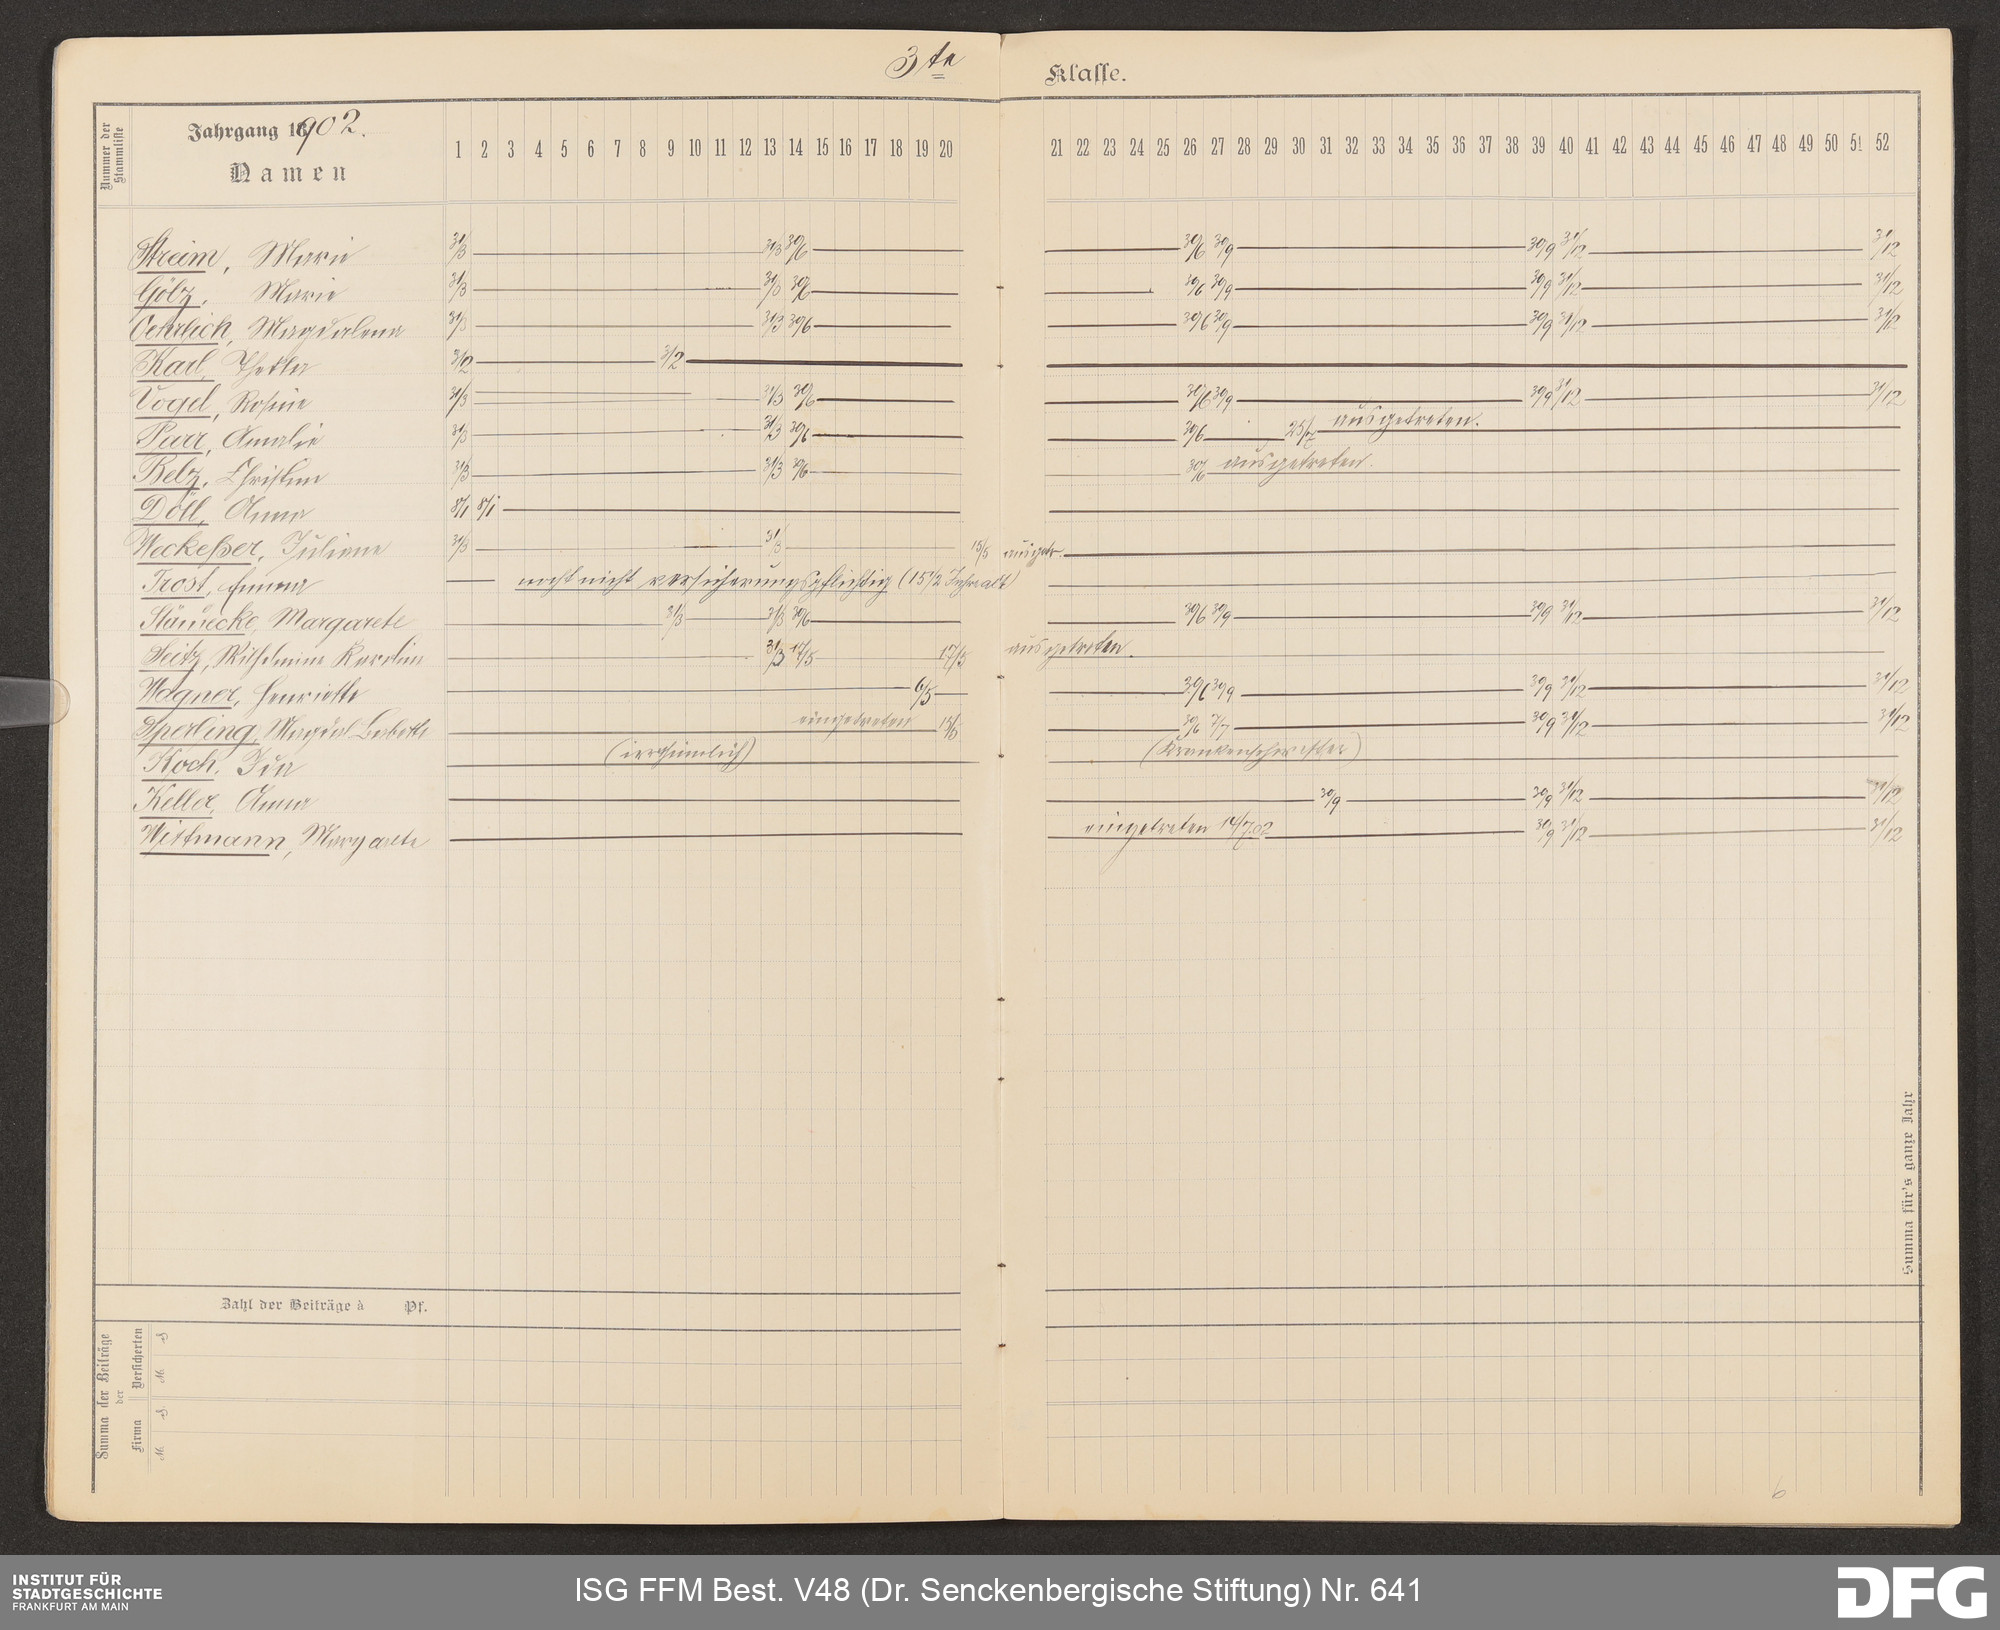 3te Klasse.
Nummer der Stammliste
Jahrgang 1902.
Namen
1 2 3 4 5 6 7 8 9 10 11 12 13 14 15 16 17 18 19 20 21 22 23 24 25 26 27 28 29 30 31 32 33 34 35 36 37 38 39 40 41 42 43 44 45 46 47 48 49 50 51 52
Streim, Marie 31/3 31/3 30/6 30/6 30/9 30/9 31/12 31/12
Gölz, Marie 31/3 31/3 30/6 30/6 30/9 30/9 31/12 31/12
Oehrlich, Magdalena 31/3 31/3 30/6 30/6 30/9 30/9 31/12 31/12
Karl, Thekla 3/2 3/2
Vogel, Rosine 31/3 31/3 30/6 30/6 30/9 30/9 31/12 31/12
Purr, Amalie 31/3 31/3 30/6 30/6 25/7 ausgetreten.
Belz, Christine 31/3 31/3 30/6 30/6 ausgetreten.
Döll, Anna 8/1 8/1
Weckeßer, Juliane 31/3 31/3 15/5 ausgetr.
Trost, Emma noch nicht versicherungspflichtig (15 1/2 Jahr alt)
Margarete 31/3 31/3 30/6 30/6 30/9 30/9 31/12 31/12
Seitz, Wilhelmine Karolin 31/3 17/5 17/5 ausgetreten.
Wagner, Henriette 6/5 30/6 30/9 30/9 31/12 31/12
Sperling, eingetreten 15/6 30/6 7/7 30/9 31/12 31/12
Koch, Ida (irrthümlich) (Krankenschwester)
Keller, Anna 30/9 30/9 31/12 31/12
Wittmann, Margarete eingetreten 14/7.02 30/9 31/12 31/12
Summa für's ganze Jahr
Zahl der Beiträge à Pf.
Summa der Beiträge der
Versicherten
Firma
M. S.
M. S.
6
INSTITUT FÜR
STADTGESCHICHTE
FRANKFURT AM MAIN
ISG FFM Best. V48 (Dr. Senckenbergische Stiftung) Nr. 641
DFG